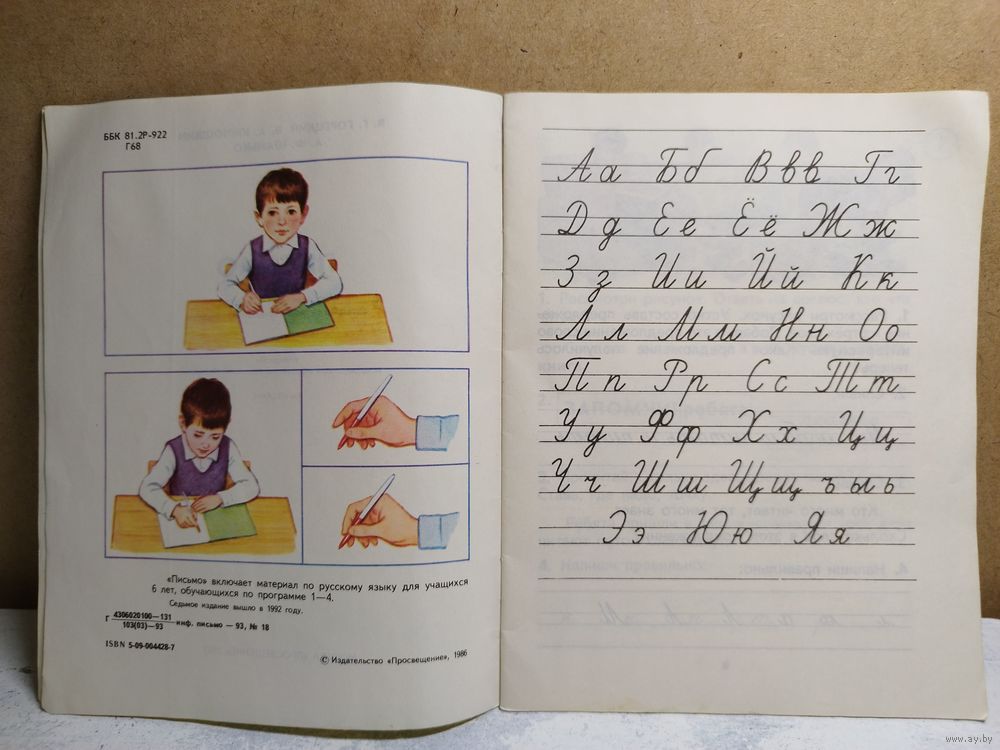 ББК 81.2Р-922
Г68
«Письмо» включает материал по русскому языку для учащихся
6 лет, обучающихся по программе 1—4.
Седьмое издание вышло в 1992 году.
Г 4306020100—131
103(03)—93 инф. письмо — 93, № 18
ISBN 5-09-004428-7
© Издательство «Просвещение», 1986
Аа Бб Ввв Гг
Дд Ее Ёё Жж
Зз Ии Йй Кк
Лл Мм Нн Оо
Пп Рр Сс Тт
Уу Фф Хх Цц
Чч Шш Щщ ъ ы ь
Ээ Юю Яя
www.ay.by